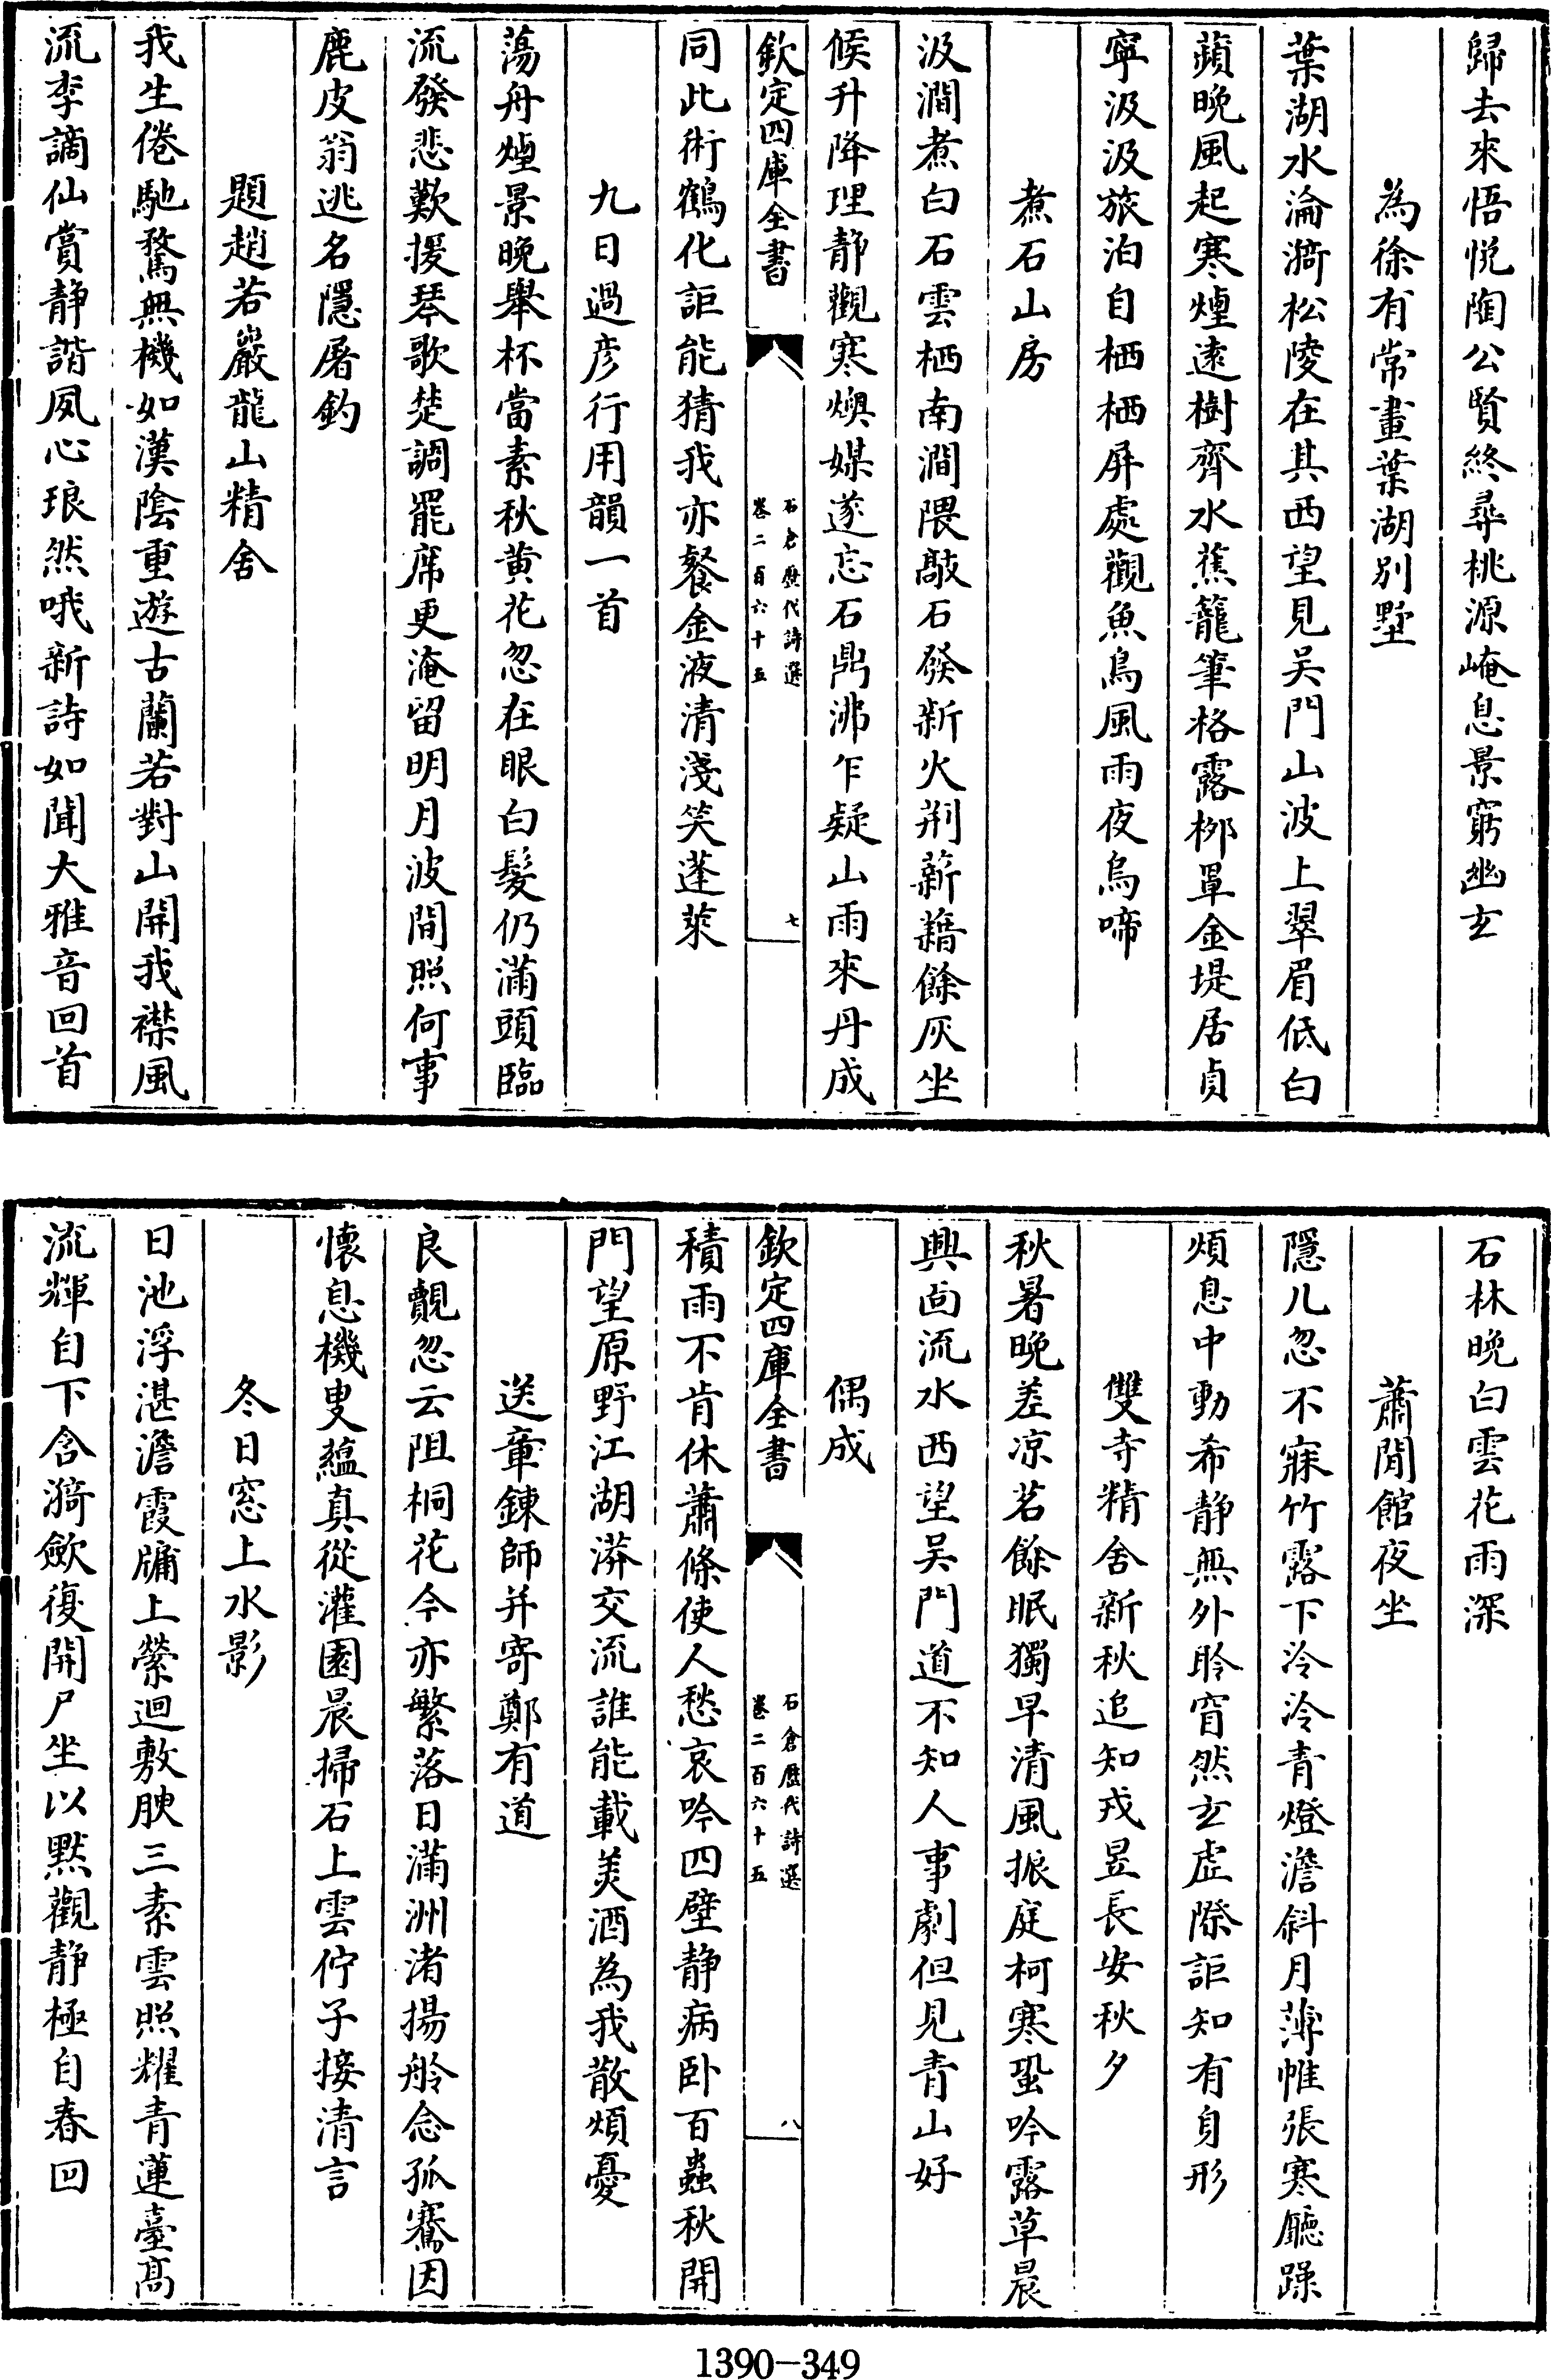 歸去來悟悦陶公賢終尋桃源崦息景窮幽玄
為徐有常畫葉湖別墅
葉湖水淪漪松陵在其西望見吴門山波上翠眉低白
蘋晚風起寒煙遠樹齊水蕉籠筆格露栁罩金堤居貞
寧汲汲旅泊自栖栖屏處觀魚鳥風雨夜烏啼
煮石山房
汲澗煮白石雲栖南澗隈敲石發新火荆薪藉餘灰坐
候升降理静觀寒燠媒遂忘石鼎沸乍疑山雨來丹成
欽定四庫全書
石倉歷代詩選
卷二百六十五
七
同此術鶴化詎能猜我亦餐金液清淺笑蓬萊
九日過彦行用韻一首
蕩舟煙景晚舉杯當素秋黄花忽在眼白髮仍滿頭臨
流發悲歎援琴歌楚調罷席更淹留明月波間照何事
鹿皮翁逃名隱屠釣
題趙若巖龍山精舍
我生倦馳騖無機如漢陰重遊古蘭若對山開我襟風
流李謫仙賞静諧夙心琅然哦新詩如聞大雅音回首
石林晚白雲花雨深
蕭閒館夜坐
隱几忽不寐竹露下泠泠青燈澹斜月薄帷張寒廳躁
煩息中動希静無外聆窅然玄虚際詎知有身形
雙寺精舍新秋追知戎昱長安秋夕
秋暑晚差凉茗餘眠獨早清風振庭柯寒蛩吟露草晨
興面流水西望吴門道不知人事劇但見青山好
偶成
欽定四庫全書
石倉歷代詩選
卷二百六十五
八
積雨不肯休蕭條使人愁哀吟四壁静病卧百蟲秋開
門望原野江湖漭交流誰能載美酒為我散煩憂
送章鍊師并寄鄭有道
良覿忽云阻桐花今亦繁落日滿洲渚揚舲念孤騫因
懷息機叟藴真從灌園晨掃石上雲佇子接清言
冬日窓上水影
日池浮湛澹霞牖上縈迴敷腴三素雲照耀青蓮臺高
流輝自下含漪歛復開尸坐以黙觀静極自春回
1390-349